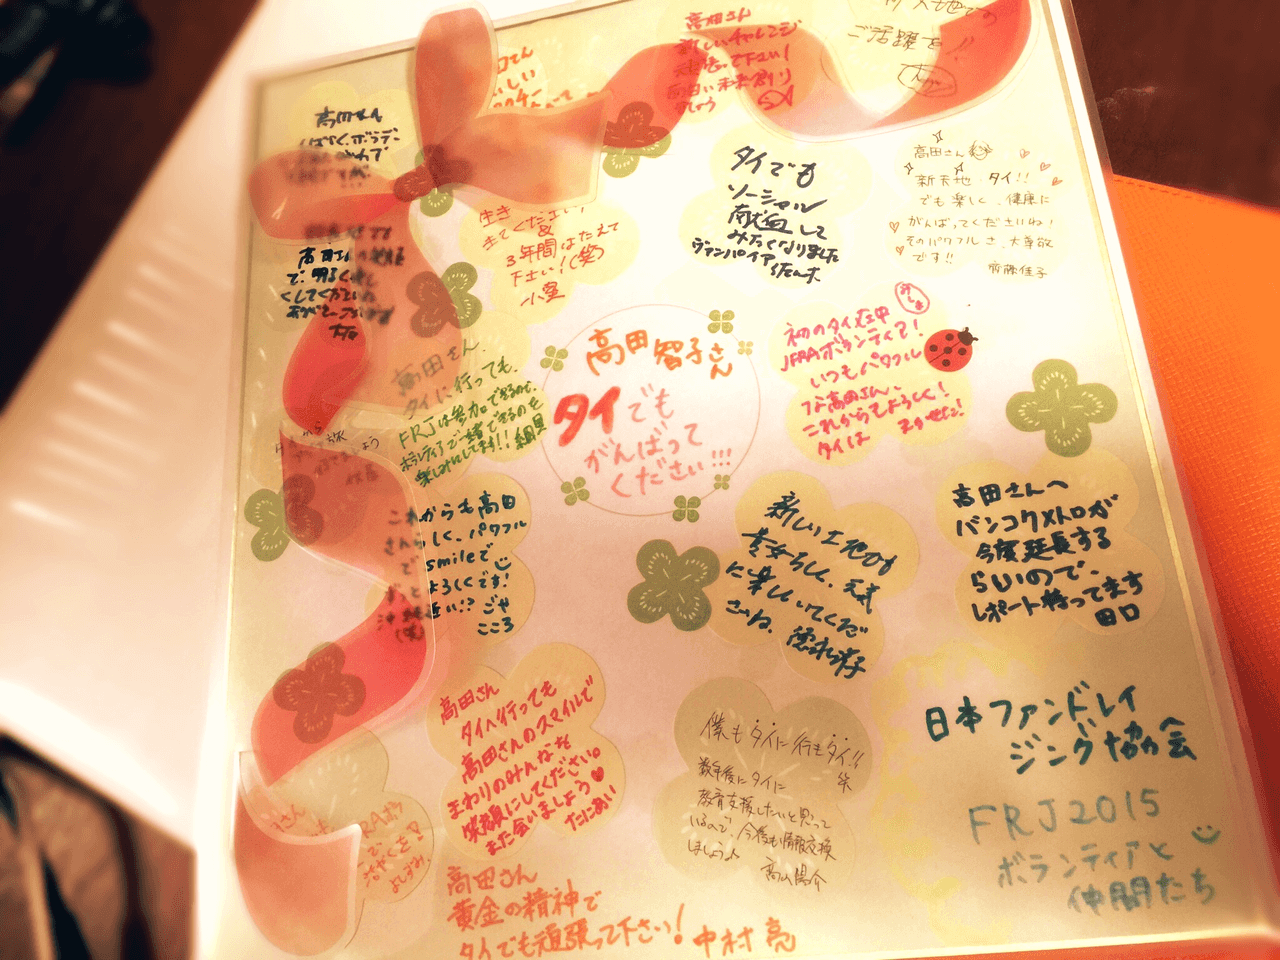 高田智子さん
タイでも
がんばって
ください!!!
高田さん
高田さん
新しいチャレンジ
頑張って下さい!
面白い未来創り
ましょう
新天地での
ご活躍を!!
タイでも
ソーシャル
献血して
みたくなりました
ヴァンパイア
高田さん
新天地・タイ!!
でも楽しく、健康に
がんばってくださいね!
そのパワフルさ、大尊敬
です!!
齊藤佳子
生き
生きてください!
&
3年間はたえて
下さい!(笑)
小室
高田さんの
で、明るく
高田さん、
タイに行っても、
FRJは参加できるので、
ボランティアで一緒できるのを
楽しみにしてます!!
初のタイ在中
JFRAボランティア!
いつもパワフル
な高田さん、
これからもよろしく!
タイは
これからも高田
さんらしく、パワフル
smileで
よろしくです!
ずっと
沖縄
近い!?
(笑)
ごや
こころ
新しい土地でも
貴女らしく、元気
に楽しんでくだ
さいね、
高田さんへ
バンコクメトロが
今度延長する
らしいので、
レポート待ってます
田口
高田さん
タイへ行っても
高田さんのスマイルで
まわりのみんなを
笑顔にしてください。
また会いましょう♥
たにあい
僕もタイに行きタイ!!
数年後にタイに
教育支援したいと思って
いるので、今後も情報交換
しましょう
高山陽介
日本ファンドレイ
ジング協会
FRJ2015
ボランティアと
仲間たち
高田さん
黄金の精神で
タイでも頑張って下さい!
中村亮